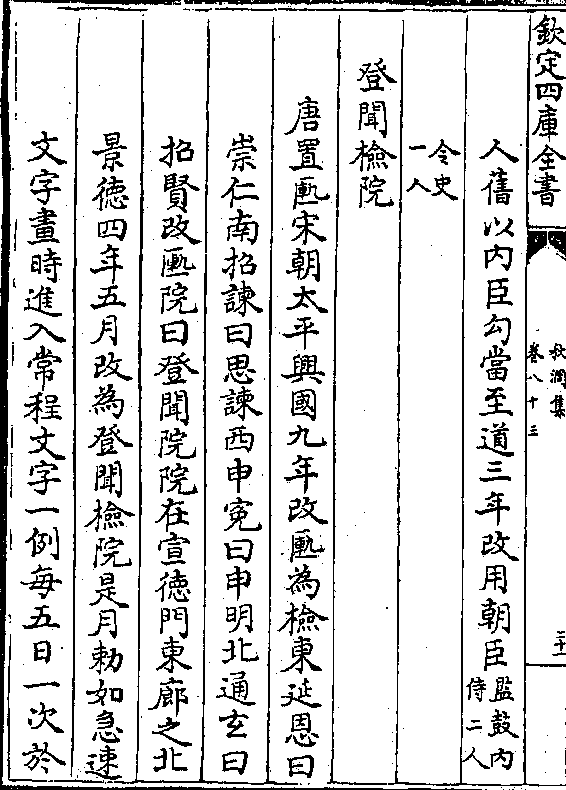 欽定四庫全書
秋澗集
卷八十三
人舊以内臣勾當至道三年改用朝臣監鼓内
侍二人
令史
一人
登聞檢院
唐置匭宋朝太平興國九年改匭為檢東延恩曰
崇仁南招諫曰思諫西申寃曰申明北通玄曰
招賢改匭院曰登聞院院在宣徳門東廊之北
景徳四年五月改為登聞檢院是月勅如急速
文字畫時進入常程文字一例每五日一次於